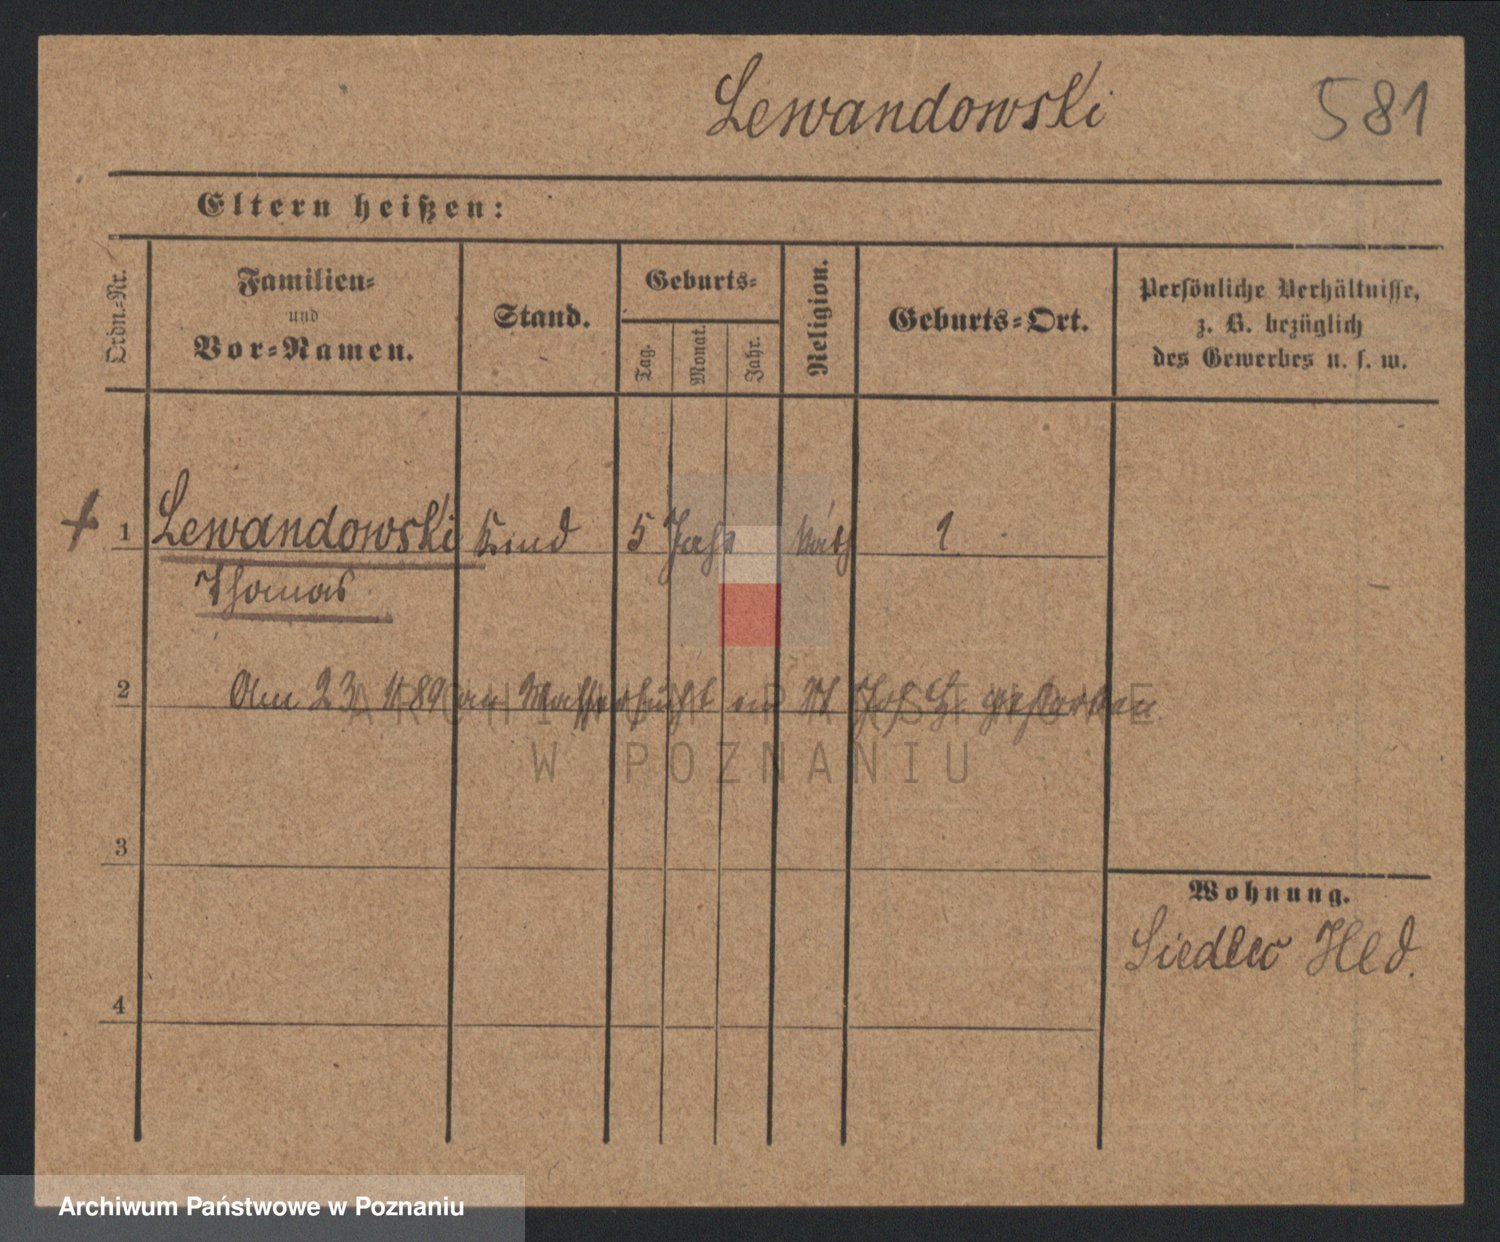 Lewandowski 581
Eltern heißen:
Ordn.-Nr.
Familien-
und
Vor-Namen.
Stand.
Geburts-
Tag.
Monat.
Jahr.
Religion.
Geburts-Ort.
Persönliche Verhältnisse,
z. B. bezüglich
des Gewerbes u. s. w.
+ 1 Lewandowski Kind 5 Jahr kath
Thomas
2 Am 23 89 an Wassersucht in gestorben
ARCHIWUM PAŃSTWOWE
W POZNANIU
3
Wohnung.
Siedlec Hld.
4
Archiwum Państwowe w Poznaniu